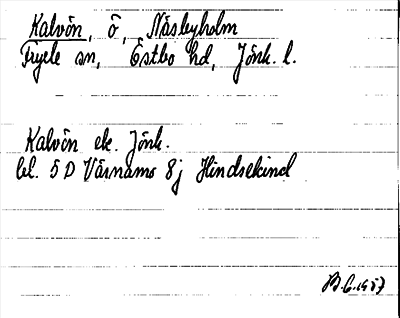 Kalvön, ö, Näsbyholm
Fryele sn, Östbo hd, Jönk. l.
Kalvön ek. Jönk.
bl. 5D Värnamo 8j Hindsekind
1957